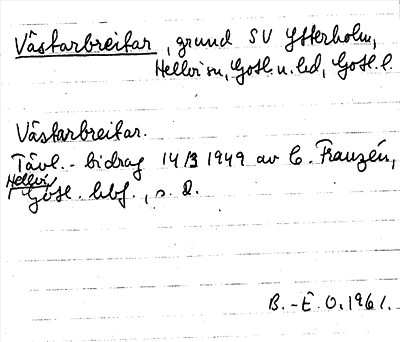 Västarbreitar, grund SV Ytterholm,
Hellvi sn, Gotl. n. hd, Gotl. l.
Västarbreitar.
Tävl.-bidrag 14/3 1949 av C. Franzén,
Hellvi
Gotl. hbf., s. 2.
B.-E. O. 1961.